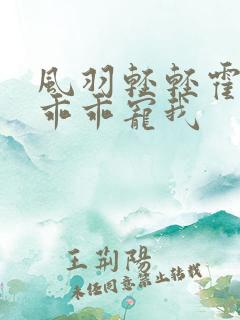 風羽輕輕霍
乖乖寵我
王荊陽
未经同意禁止转载